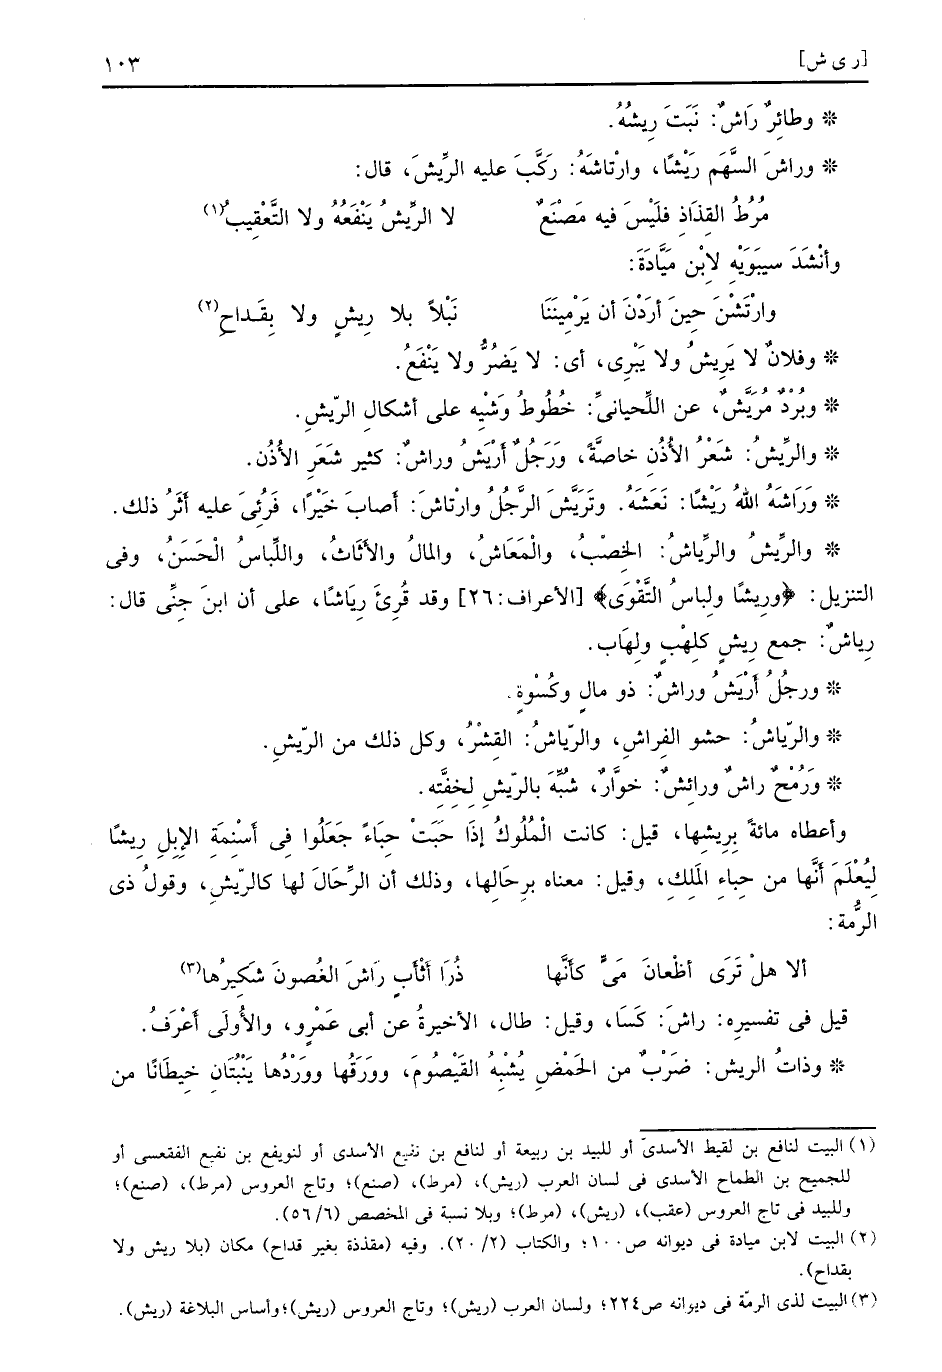 [ر ی ش] ١٠٣
❊ وطائِرٌ رَاشٌ: نَبَتَ رِيشُهُ.
❊ وراشَ السَّهَم رَيْشًا، وارْتاشَهُ: رَكَّبَ عليه الرِّيشَ، قال:
مُرُطُ القِذَاذِ فلَيْسَ فيه مَصْنَعٌ لا الرِّيشُ يَنْفَعُهُ ولا التَّعْقِيبُ(١)
وأنْشَدَ سيبَوَيْهِ لابْنِ مَيَّادَةَ:
وارْتَشْنَ حِينَ أرَدْنَ أن يَرْمِينَنَا نَبْلاً بلا رِيشٍ ولا بِقَـداحِ(٢)
❊ وفلانٌ لا يَرِيشُ ولا يَبْرِى، أى: لا يَضُرُّ ولا يَنْفَعُ.
❊ وبُرْدٌ مُرَيَّشٌ، عن اللِّحيانىِّ: خُطُوطُ وَشْيِه على أشكال الرِّيشِ.
❊ والرِّيشُ: شَعْرُ الأُذُنِ خاصَّةً، ورَجُلٌ أرْيَشُ وراشٌ: كثير شَعَرِ الأُذُن.
❊ وَرَاشَهُ اللهُ رَيْشًا: نَعَشَهُ. وتَرَيَّشَ الرَّجُلُ وارْتاشَ: أصابَ خَيْرًا، فَرُئِىَ عليه أثَرُ ذلك.
❊ والرِّيشُ والرِّياشُ: الخِصْبُ، والْمَعَاشُ، والمالُ والأثَاثُ، واللِّباسُ الْحَسَنُ، وفى
التنزيل: ﴿وَرِيشًا ولِباسُ التَّقْوَى﴾ [الأعراف:٢٦] وقد قُرِئَ رِيَاشًا، على أن ابنَ جِنِّى قال:
رِياشٌ: جمع رِيشٍ كلِهْبٍ ولِهَاب.
❊ ورجُلُ أرْيَشُ وراشٌ: ذو مالٍ وكُسْوةٍ.
❊ والرِّياشُ: حشو الفِراشِ، والرِّياشُ: القِشْرُ، وكل ذلك من الرِّيشِ.
❊ ورُمْحٌ راشٌ ورائِشٌ: خوَّارٌ، شُبِّهَ بالرِّيشِ لخِفَّتِه.
وأعطاه مائةً بِرِيشِها، قيل: كانت الْمُلُوكُ إذَا حَبَتْ حِبَاءً جَعَلُوا فِى أسْنِمَةِ الإبِلِ رِيشًا
لِيُعْلَمَ أنَّها من حِباءِ المَلِكِ، وقيل: معناه بِرِحَالِها، وذلك أن الرِّحَالَ لها كالرِّيشِ، وقولُ ذى
الرُّمة:
ألا هلْ تَرَى أظْعانَ مَىٍّ كأنَّها ذُرَا أثْأَبٍ رَاشَ الغُصونَ شَكِيرُها(٣)
قيل فى تفسيرِه: راشَ: كَسَا، وقيل: طال، الأخيرةُ عن أبى عَمْرٍو، والأُولَى أعْرَفُ.
❊ وذاتُ الريش: ضَرْبٌ من الحَمْضِ يُشْبِهُ القَيْصُومَ، ووَرَقُها ووَرْدُها يَنْبُتَانِ خيطَانًا من
(١) البيت لنافع بن لقيط الأسدىّ أو للبيد بن ربيعة أو لنافع بن نفيع الأسدى أو لنويفع بن نفيع الفقعسى أو
للجميح بن الطماح الأسدى فى لسان العرب (ريش)، (مرط)، (صنع)؛ وتاج العروس (مرط)، (صنع)؛
وللبيد فى تاج العروس (عقب)، (ريش)، (مرط)؛ وبلا نسبة فى المخصص (٥٦/٦).
(٢) البيت لابن ميادة فى ديوانه ص١٠٠؛ والكتاب (٢٠/٢). وفيه (مقذذة بغير قداح) مكان (بلا ريش ولا
بقداح).
(٣) البيت لذى الرمّة فى ديوانه ص٢٢٤؛ ولسان العرب (ريش)؛ وتاج العروس (ريش)؛وأساس البلاغة (ريش).